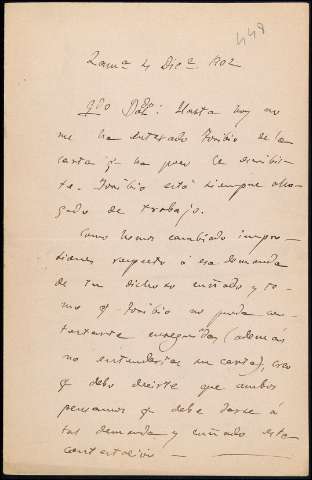 448
Zamª 4 Dicᵉ 902
Qdo Pepe: Hasta hoy no
me ha enterado Toribio de la
carta q ha poco le escribis-
te. Toribio está siempre aho-
gado de trabajo.
Como hemos cambiado impre-
siones respecto á esa demanda
de tu dichoso cuñado y te-
mo q Toribio no pueda con-
testarte enseguida (además
no entenderías su carta), creo
q debo decirte que ambos
pensamos q debe darse á
tal demanda y cuñado esta
contestación —